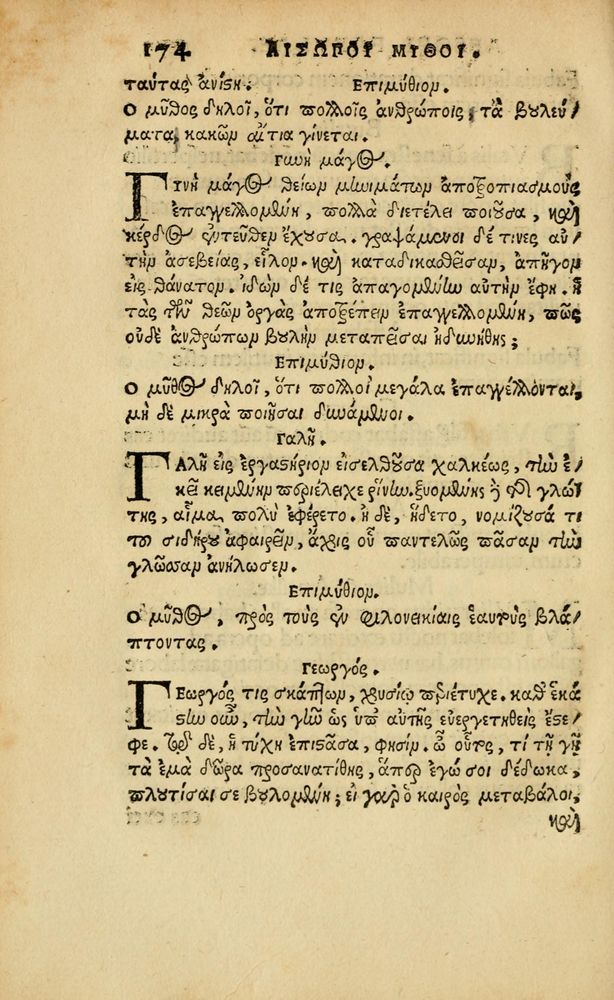 174 ΑΙΣΩΠΟΥ ΜΥΘΟΙ.
ταύτας ἀνίστη. Επιμύθιον.
Ο μῦθος δηλοῖ, ὅτι πολλοῖς ἀνθρώποις, τὰ βουλεύ/
ματα, κακῶν αἴτια γίνεται.
Γυνὴ μάγος.
ΓΥνὴ μάγος θείων μηνιμάτων ἀποτροπιασμοὺς
ἐπαγγελλομένη, πολλὰ διετέλει ποιοῦσα, καὶ
κέρδος ἐντεῦθεν ἔχουσα. γραψάμενοι δέ τινες αὐ/
τὴν ἀσεβείας, εἷλον. καὶ καταδικασθεῖσαν, ἀπῆγον
εἰς θάνατον. ἰδὼν δέ τις ἀπαγομένην αὐτὴν ἔφη. ἡ
τὰς τῶν θεῶν ὀργὰς ἀποτρέπειν ἐπαγγελλομένη, πῶς
οὐδὲ ἀνθρώπων βουλὴν μεταπεῖσαι ἠδυνήθης;
Επιμύθιον.
Ο μῦθος δηλοῖ, ὅτι πολλοὶ μεγάλα ἐπαγγέλλονται,
μὴ δὲ μικρὰ ποιῆσαι δυνάμενοι.
Γαλῆ.
ΓΑλῆ εἰς ἐργαστήριον εἰσελθοῦσα χαλκέως, τὴν ἐ/
κεῖ κειμένην περιέλειχε ῥίνην. ξυομένης δὲ τῆς γλώτ/
της, αἷμα πολὺ ἐφέρετο. ἡ δὲ, ἥδετο, νομίζουσά τι
τοῦ σιδήρου ἀφαιρεῖν, ἄχρις οὗ παντελῶς πᾶσαν τὴν
γλῶσσαν ἀνήλωσεν.
Επιμύθιον.
Ο μῦθος, πρὸς τοὺς ἐν φιλονεικίαις ἑαυτοὺς βλά/
πτοντας.
Γεωργός.
ΓΕωργός τις σκάπτων, χρυσίῳ περιέτυχε. καθ᾽ ἑκά
στην οὖν, τὴν γῆν ὡς ὑπ᾽ αὐτῆς εὐεργετηθεὶς ἔστε/
φε. τῷ δὲ, ἡ τύχη ἐπιστᾶσα, φησίν. ὦ οὗτος, τί τῇ γῇ
τὰ ἐμὰ δῶρα προσανατίθης, ἅπερ ἐγώ σοι δέδωκα,
πλουτίσαι σε βουλομένη; εἰ γὰρ ὁ καιρὸς μεταβάλοι,
καὶ